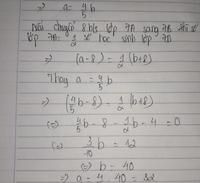 => a = 4/5 b
Nếu chuyển 8 h/s lớp 7A sang 7B thì số
lớp 7A = 1/2 số học sinh lớp 7B
=> (a-8) = 1/2 (b+8)
Thay a = 4/5 b
=> (4/5 b - 8) = 1/2 (b+8)
(=) 4/5 b - 8 - 1/2 b - 4 = 0
(=) 3/10 b = 12
(=) b = 40
=> a = 4/5 . 40 = 32